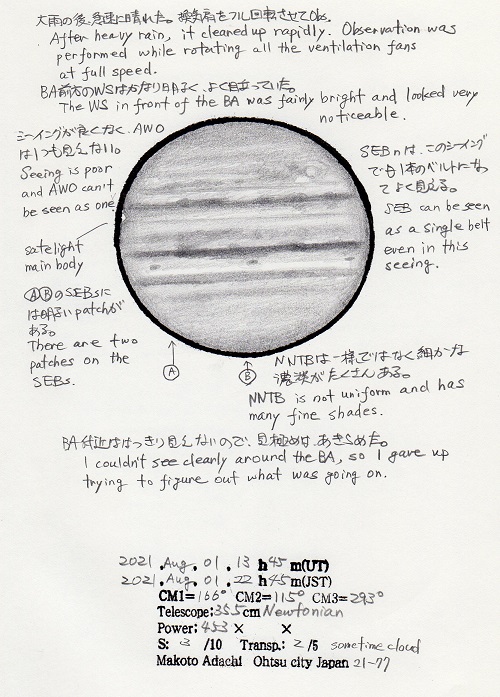 大雨の後、急速に晴れた。換気扇をフル回転させてObs.
After heavy rain, it cleaned up rapidly. Observation was
performed while rotating all the ventilation fans
at full speed.
BA前方のWSはかなり明るく、よく目立っていた。
The WS in front of the BA was fairly bright and looked very
noticeable.
シーイングが良くなく、AWO
は1つも見えない。
Seeing is poor
and AWO can't
be seen as one
satelight
main body
ⒶⒷのSEBsに
は明るいpatchが
ある。
There are two
patches on the
SEBs.
SEBnは、このシーイング
でも1本のベルトになっ
てよく見える。
SEB can be seen
as a single belt
even in this
seeing.
Ⓐ
Ⓑ
NNTBは一様ではなく細かな
濃淡がたくさんある。
NNTB is not uniform and has
many fine shades.
BA付近ははっきり見えないので、見極めは、あきらめた。
I couldn't see clearly around the BA, so I gave up
trying to figure out what was going on.
2021.Aug.01.13h45m(UT)
2021.Aug.01.22h45m(JST)
CM1=166° CM2=115° CM3=293°
Telescope:355cm Newtonian
Power:453× ×
S: 3 /10 Transp.:2/5 sometime cloud
Makoto Adachi Ohtsu city Japan 21-77